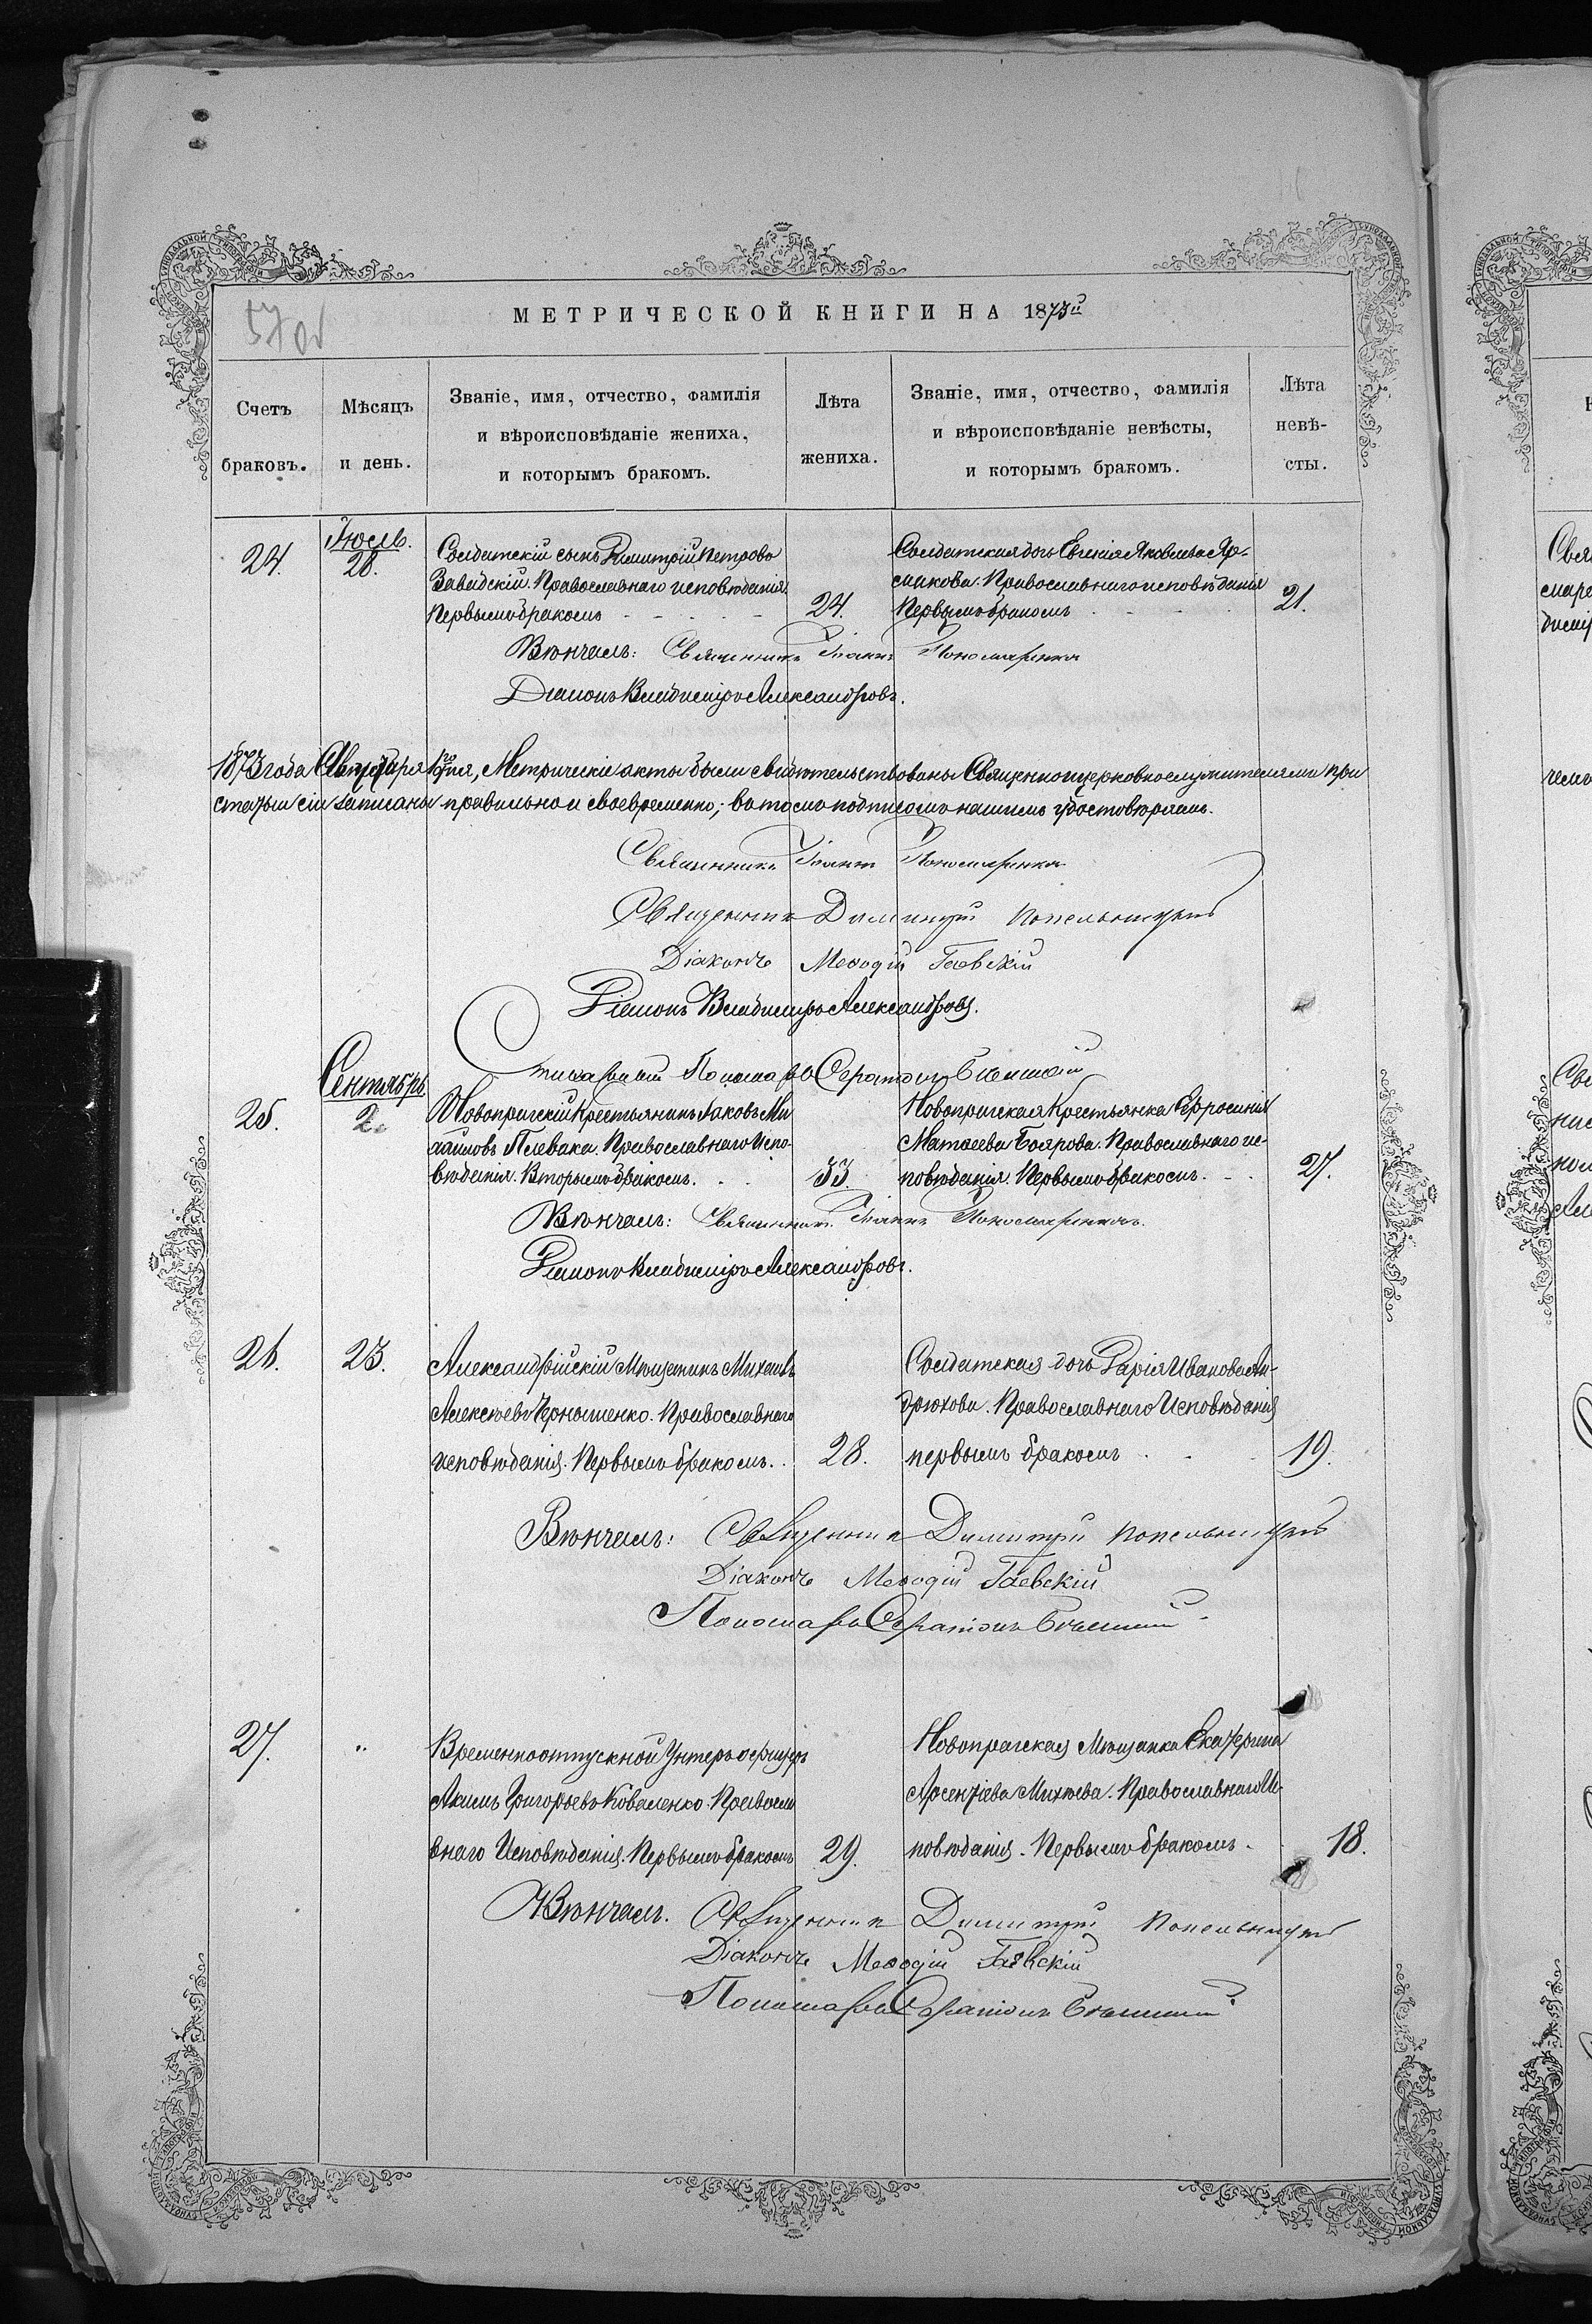 МЕТРИЧЕСКОЙ КНИГИ НА 1873й
Счетъ браковъ.
Мѣсяцъ и день.
Званіе, имя, отчество, фамилія
и вѣроисповѣданіе жениха,
и которымъ бракомъ.
Лѣта жениха.
Званіе, имя, отчество, фамилія
и вѣроисповѣданіе невѣсты,
и которымъ бракомъ.
Лѣта невѣ-
сты.
Іюль.
24. 28.
Солдатскій сынъ Димитрій Петровъ
Завадскій. Православнаго исповѣданія.
Первымъ бракомъ 24.
Солдатская дочь Евгенія Яковлева Яр-
макова. Православнаго исповѣданія
Первымъ бракомъ 21.
Вѣнчалъ: Священникъ Іоаннъ Пономаренко
Діаконъ Владиміръ Александровъ.
1873 года Сентября дня, Метрическіе акты были свидѣтельствованы Священноцерковнослужителями при
статьи сіи записаны правильно и своевременно; въ томъ подписомъ нашимъ удостовѣряемъ.
Священникъ Іоаннъ Пономаренко
Священникъ Димитрій Попельницкій
Діаконъ Меѳодій Гаевскій
Діаконъ Владиміръ Александровъ.
Пономарь Серапіонъ
Сентябрь
25. 2.
Новопрагскій Крестьянинъ Іаковъ Ми
хайловъ Плевака. Православнаго Испо-
вѣданія. Вторымъ бракомъ. 33.
Новопрагская Крестьянка Евфросинія
Матѳеева Боярова. Православнаго ис-
повѣданія. Первымъ бракомъ. 27.
Вѣнчалъ: Священникъ Іоаннъ Пономаренко.
Діаконъ Владиміръ Александровъ.
26. 23.
Александрійскій Мѣщанинъ Михаилъ
Алексѣевъ Чернышенко. Православнаго
исповѣданія. Первымъ бракомъ. 28.
Солдатская дочь Дарія Иванова Ан-
дрюхова. Православнаго Исповѣданія
первымъ бракомъ 19.
Вѣнчалъ: Священникъ Димитрій Попельницкій
Діаконъ Меѳодій Гаевскій
Пономарь Серапіонъ
27. "
Временноотпускной Унтеръ офицеръ
Акимъ Григорьевъ Коваленко. Правосла
внаго Исповѣданія. Первымъ бракомъ 29.
Новопрагская Мѣщанка Екатерина
Арсентіева Михѣева. Православнаго Ис-
повѣданія. Первымъ бракомъ. 18.
Вѣнчалъ. Священникъ Димитрій Попельницкій
Діаконъ Меѳодій Гаевскій
Пономарь Серапіонъ